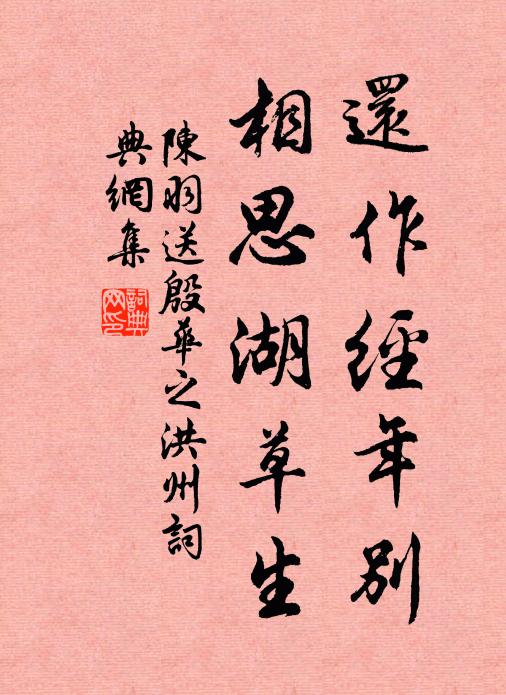 還作經年別
相思湖草生
陳羽送殷華之洪州詞
典網集
詞典
网印